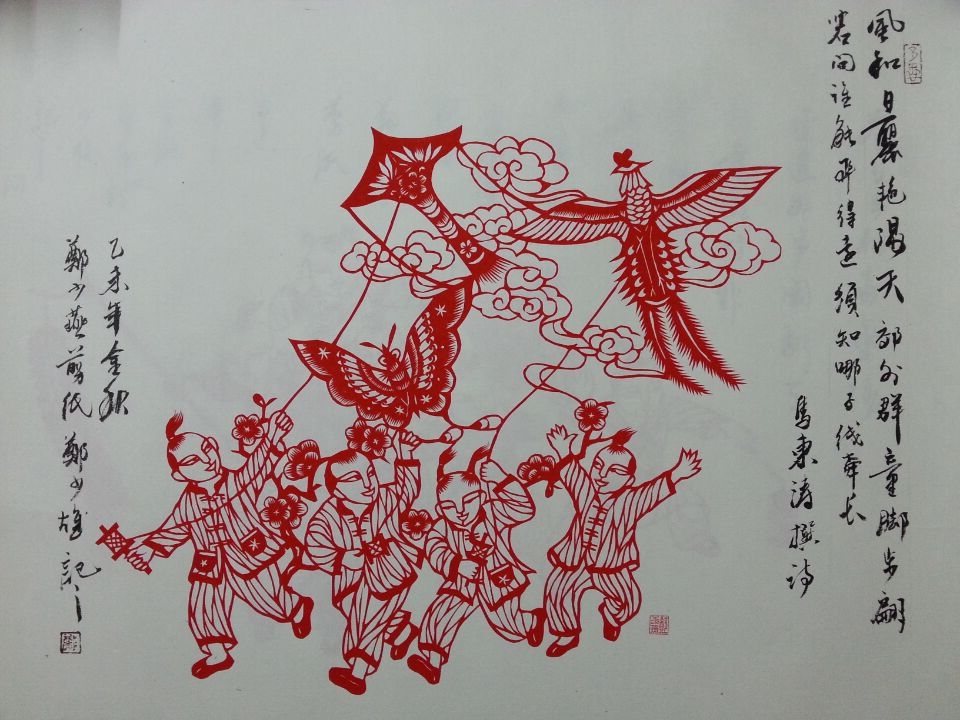 風和日麗艳陽天郊外群童脚步翩
若问谁能飛得遠須知哪子线牵长
馬東涛撰诗
乙未年金秋
鄭少燕剪纸鄭少雄記